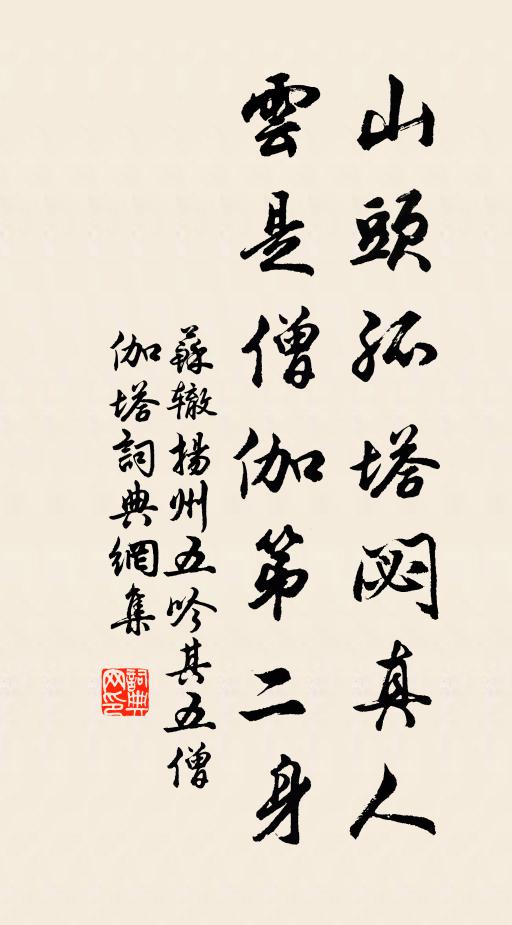 山頭孤塔閟真人
雲是僧伽第二身
蘇辙揚州五吟其五僧
伽塔詞典網集
詞典网印